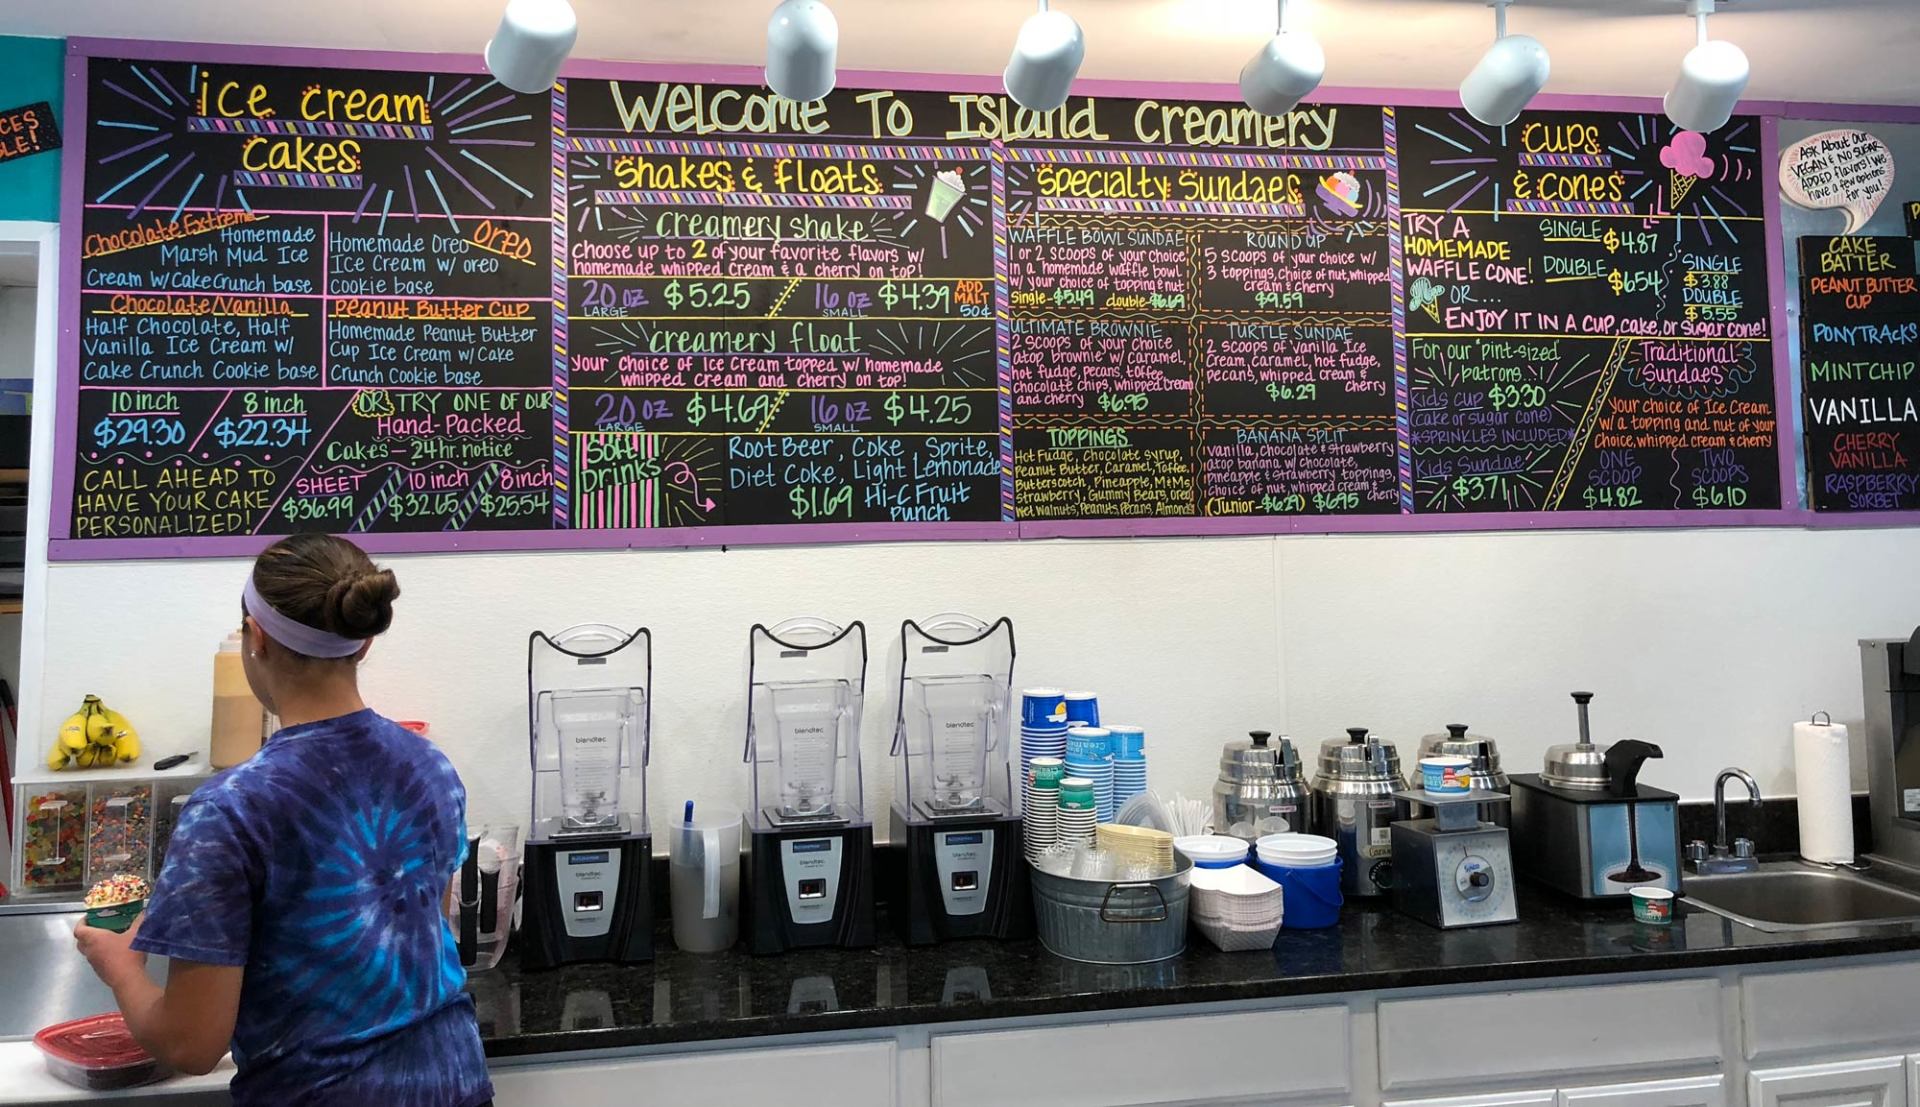 CES
LE!
ice cream
Cakes
Chocolate Extreme
Homemade
Marsh Mud Ice
Cream w/ Cake Crunch base
Oreo
Homemade Oreo
Ice Cream w/ oreo
Cookie base
Chocolate/Vanilla
Half Chocolate, Half
Vanilla Ice Cream w/
Cake Crunch Cookie base
Peanut Butter Cup
Homemade Peanut Butter
Cup Ice Cream w/ Cake
Crunch Cookie base
10 inch
$29.30
8 inch
$22.34
OR TRY ONE OF OUR
Hand-Packed
Cakes - 24 hr. notice
SHEET
$36.99
10 inch
$32.65
8 inch
$25.54
CALL AHEAD TO
HAVE YOUR CAKE
PERSONALIZED!
Welcome To Island Creamery
Shakes & Floats
creamery shake
Choose up to 2 of your favorite flavors w/
homemade whipped cream & a cherry on top!
20 oz $5.25
LARGE
16 oz $4.39
SMALL
ADD
MALT
50¢
creamery float
Your choice of Ice Cream topped w/ homemade
whipped cream and cherry on top!
20 oz $4.69
LARGE
16 oz $4.25
SMALL
Soft
Drinks
Root Beer, Coke, Sprite,
Diet Coke, Light Lemonade
$1.69 Hi-C Fruit
Punch
Specialty Sundaes
WAFFLE BOWL SUNDAE
1 or 2 scoops of your choice
in a homemade waffle bowl
w/ your choice of topping & nut
single-$5.49 double-$6.69
ROUND UP
5 scoops of your choice w/
3 toppings, choice of nut, whipped
cream & cherry
$9.59
ULTIMATE BROWNIE
2 scoops of your choice
atop brownie w/ caramel,
hot fudge, pecans, toffee,
chocolate chips, whipped cream
and cherry $6.95
TURTLE SUNDAE
2 scoops of vanilla Ice
Cream, caramel, hot fudge,
pecans, whipped cream &
cherry
$6.29
TOPPINGS
Hot Fudge, Chocolate syrup,
Peanut Butter, Caramel, Toffee,
Butterscotch, Pineapple, M&Ms
Strawberry, Gummy Bears, Oreo,
Wet Walnuts, Peanuts, Pecans, Almonds
BANANA SPLIT
Vanilla, chocolate & strawberry
atop banana w/ chocolate,
pineapple & strawberry toppings,
choice of nut, whipped cream &
cherry
(Junior-$6.29) $6.95
Cups
& Cones
TRY A
HOMEMADE
WAFFLE CONE!
SINGLE $4.87
DOUBLE $6.54
OR...
SINGLE
$3.88
DOUBLE
$5.55
ENJOY IT IN A CUP, cake, or sugar cone!
For our "pint-sized"
patrons...!
Kids Cup $3.30
(cake or sugar cone)
*SPRINKLES INCLUDED*
Kids Sundae
$3.71
Traditional
Sundaes
Your choice of Ice Cream
w/ a topping and nut of your
choice, whipped cream & cherry
ONE
SCOOP
$4.82
TWO
SCOOPS
$6.10
Ask About Our
VEGAN & NO SUGAR
ADDED flavors! We
have a few options
for you!
CAKE
BATTER
PEANUT BUTTER
CUP
PONY TRACKS
MINT CHIP
VANILLA
CHERRY
VANILLA
RASPBERRY
SORBET
blendtec
blendtec
blendtec
blendtec
blendtec
blendtec